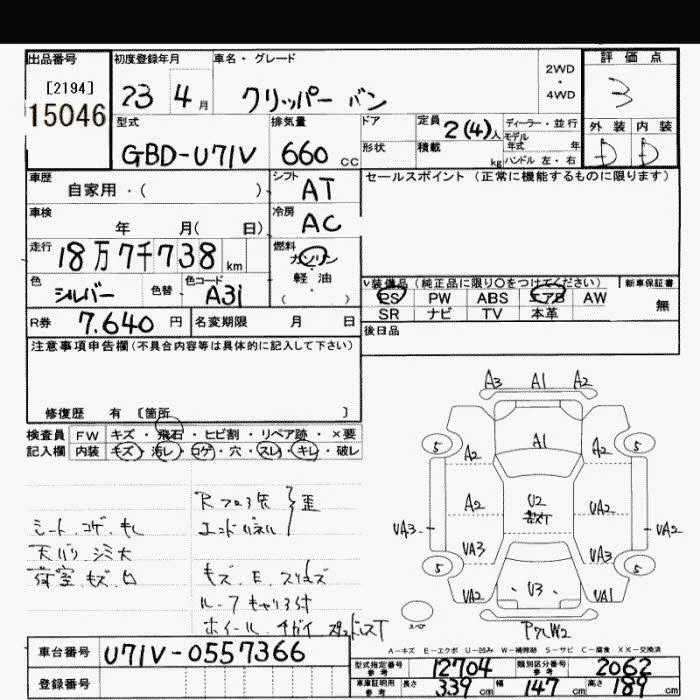 出品番号 初度登録年月 車名・グレード 2WD・4WD 評価点
[2194]
15046 23 4月 クリッパー バン 3
型式 排気量 ドア 定員 2(4)人 ディーラー・並行 外装 内装
モデル年式 年
GBD-U71V 660cc 形状 積載 kg ハンドル 左・右 D D
車歴 自家用・( ) シフト AT セールスポイント(正常に機能するものに限ります)
車検 年 月( 日) 冷房 AC
走行 18万7千738km 燃料 ガソリン・軽油・( )
色 シルバー 色替 色コード A31
∨装備品(純正品に限り○をつけてください) 新車保証書
PS PW ABS エアB AW 無
SR ナビ TV 本革
R券 7,640円 名変期限 月 日 後日品
注意事項申告欄(不具合内容等は具体的に記入して下さい)
修復歴 有 [箇所 ]
検査員 FW キズ・飛石・ヒビ割・リペア跡・×要
記入欄 内装 キズ・汚レ・コゲ・穴・スレ・キレ・破レ
シート コゲ
天バリ シミ大
荷室 キズ
Rフロア 歪
エンドパネル
キズ.E.スリキズ
ルーフキャリア付
ホイール チガイ スタッドレスT
A3 A1 A2
5 A2 A1 A2 5
A2 U2 UA2
UA3 UA2
UA3 UA3
5 UA2 U3 UA1 5
スペア
W2
A-キズ E-エクボ U-凹み W-補修跡 S-サビ C-腐食 XX-交換済
車台番号 U71V-0557366
型式指定番号 参考 12704 類別区分番号 参考 2062
登録番号
車庫証明用 参考 長さ 339cm 幅 147cm 高さ 189cm